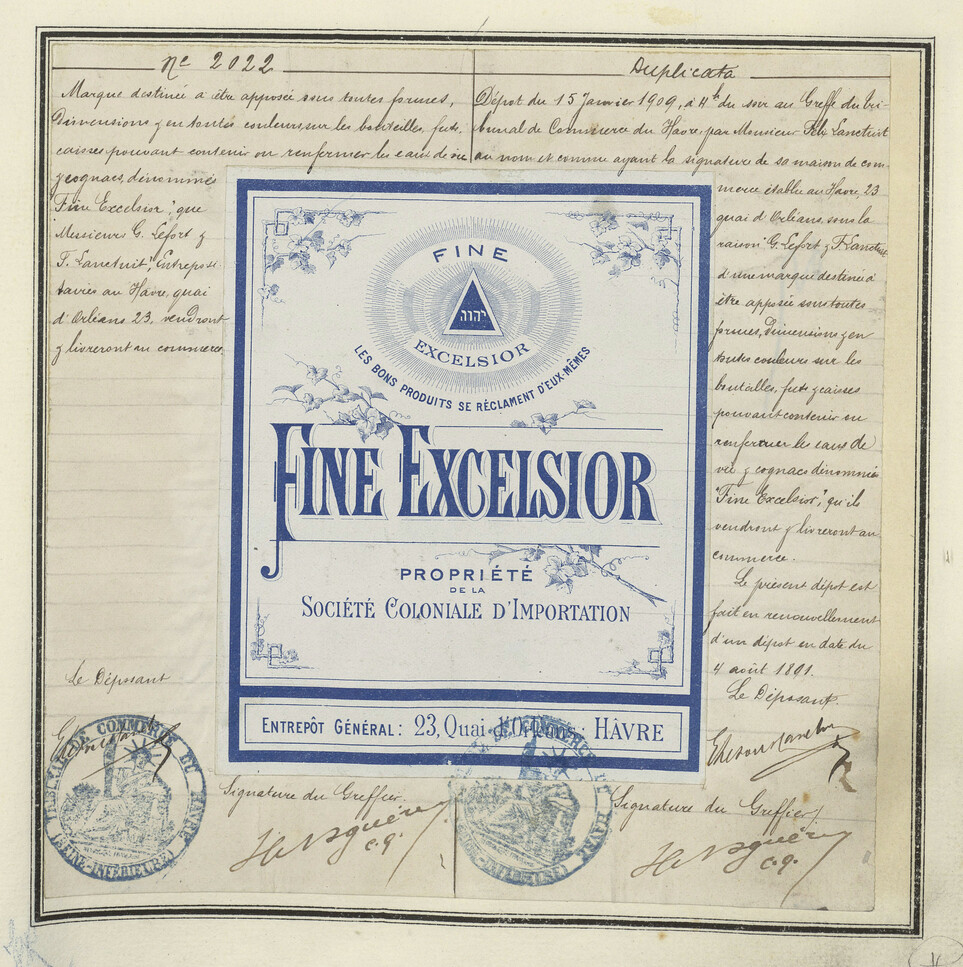 Nº 2022
Marque destinée à être apposée sous toutes formes,
Dimensions & en toutes couleurs, sur les bouteilles, futs,
caisses pouvant contenir ou renfermer les eaux de vie
& cognacs, dénommés
"Fine Excelsior", que
Messieurs G. Lefort &
F. Lanctuit, Entrepos-
taires au Hâvre, quai
d'Orléans 23, vendront
& livreront au commerce.
Le Déposant
Duplicata
Dépôt du 15 Janvier 1909, à 4h du soir au Greffe du Tri-
bunal de Commerce du Havre, par Monsieur Lanctuit
au nom et comme ayant la signature de sa maison de com-
merce établie au Hâvre, 23
quai d'Orléans, sous la
raison "G. Lefort & F. Lanctuit"
d'une marque destinée à
être apposée sous toutes
formes, Dimensions & en
toutes couleurs sur les
bouteilles, futs & caisses
pouvant contenir ou
renfermer les eaux de
vie & cognacs dénommés
"Fine Excelsior", qu'ils
vendront & livreront au
commerce.
Le présent dépôt est
fait en renouvellement
d'un dépôt en date du
4 août 1891.
Le Déposant.
FINE
יהוה
EXCELSIOR
LES BONS PRODUITS SE RÉCLAMENT D'EUX-MÊMES
FINE EXCELSIOR
PROPRIÉTÉ
DE LA
SOCIÉTÉ COLONIALE D'IMPORTATION
ENTREPÔT GÉNÉRAL: 23, Quai d'Orléans, HÂVRE
TRIBUNAL DE COMMERCE DU HAVRE
(SEINE-INFÉRIEURE)
Signature du Greffier.
c.g.
Signature du Greffier
c.g.